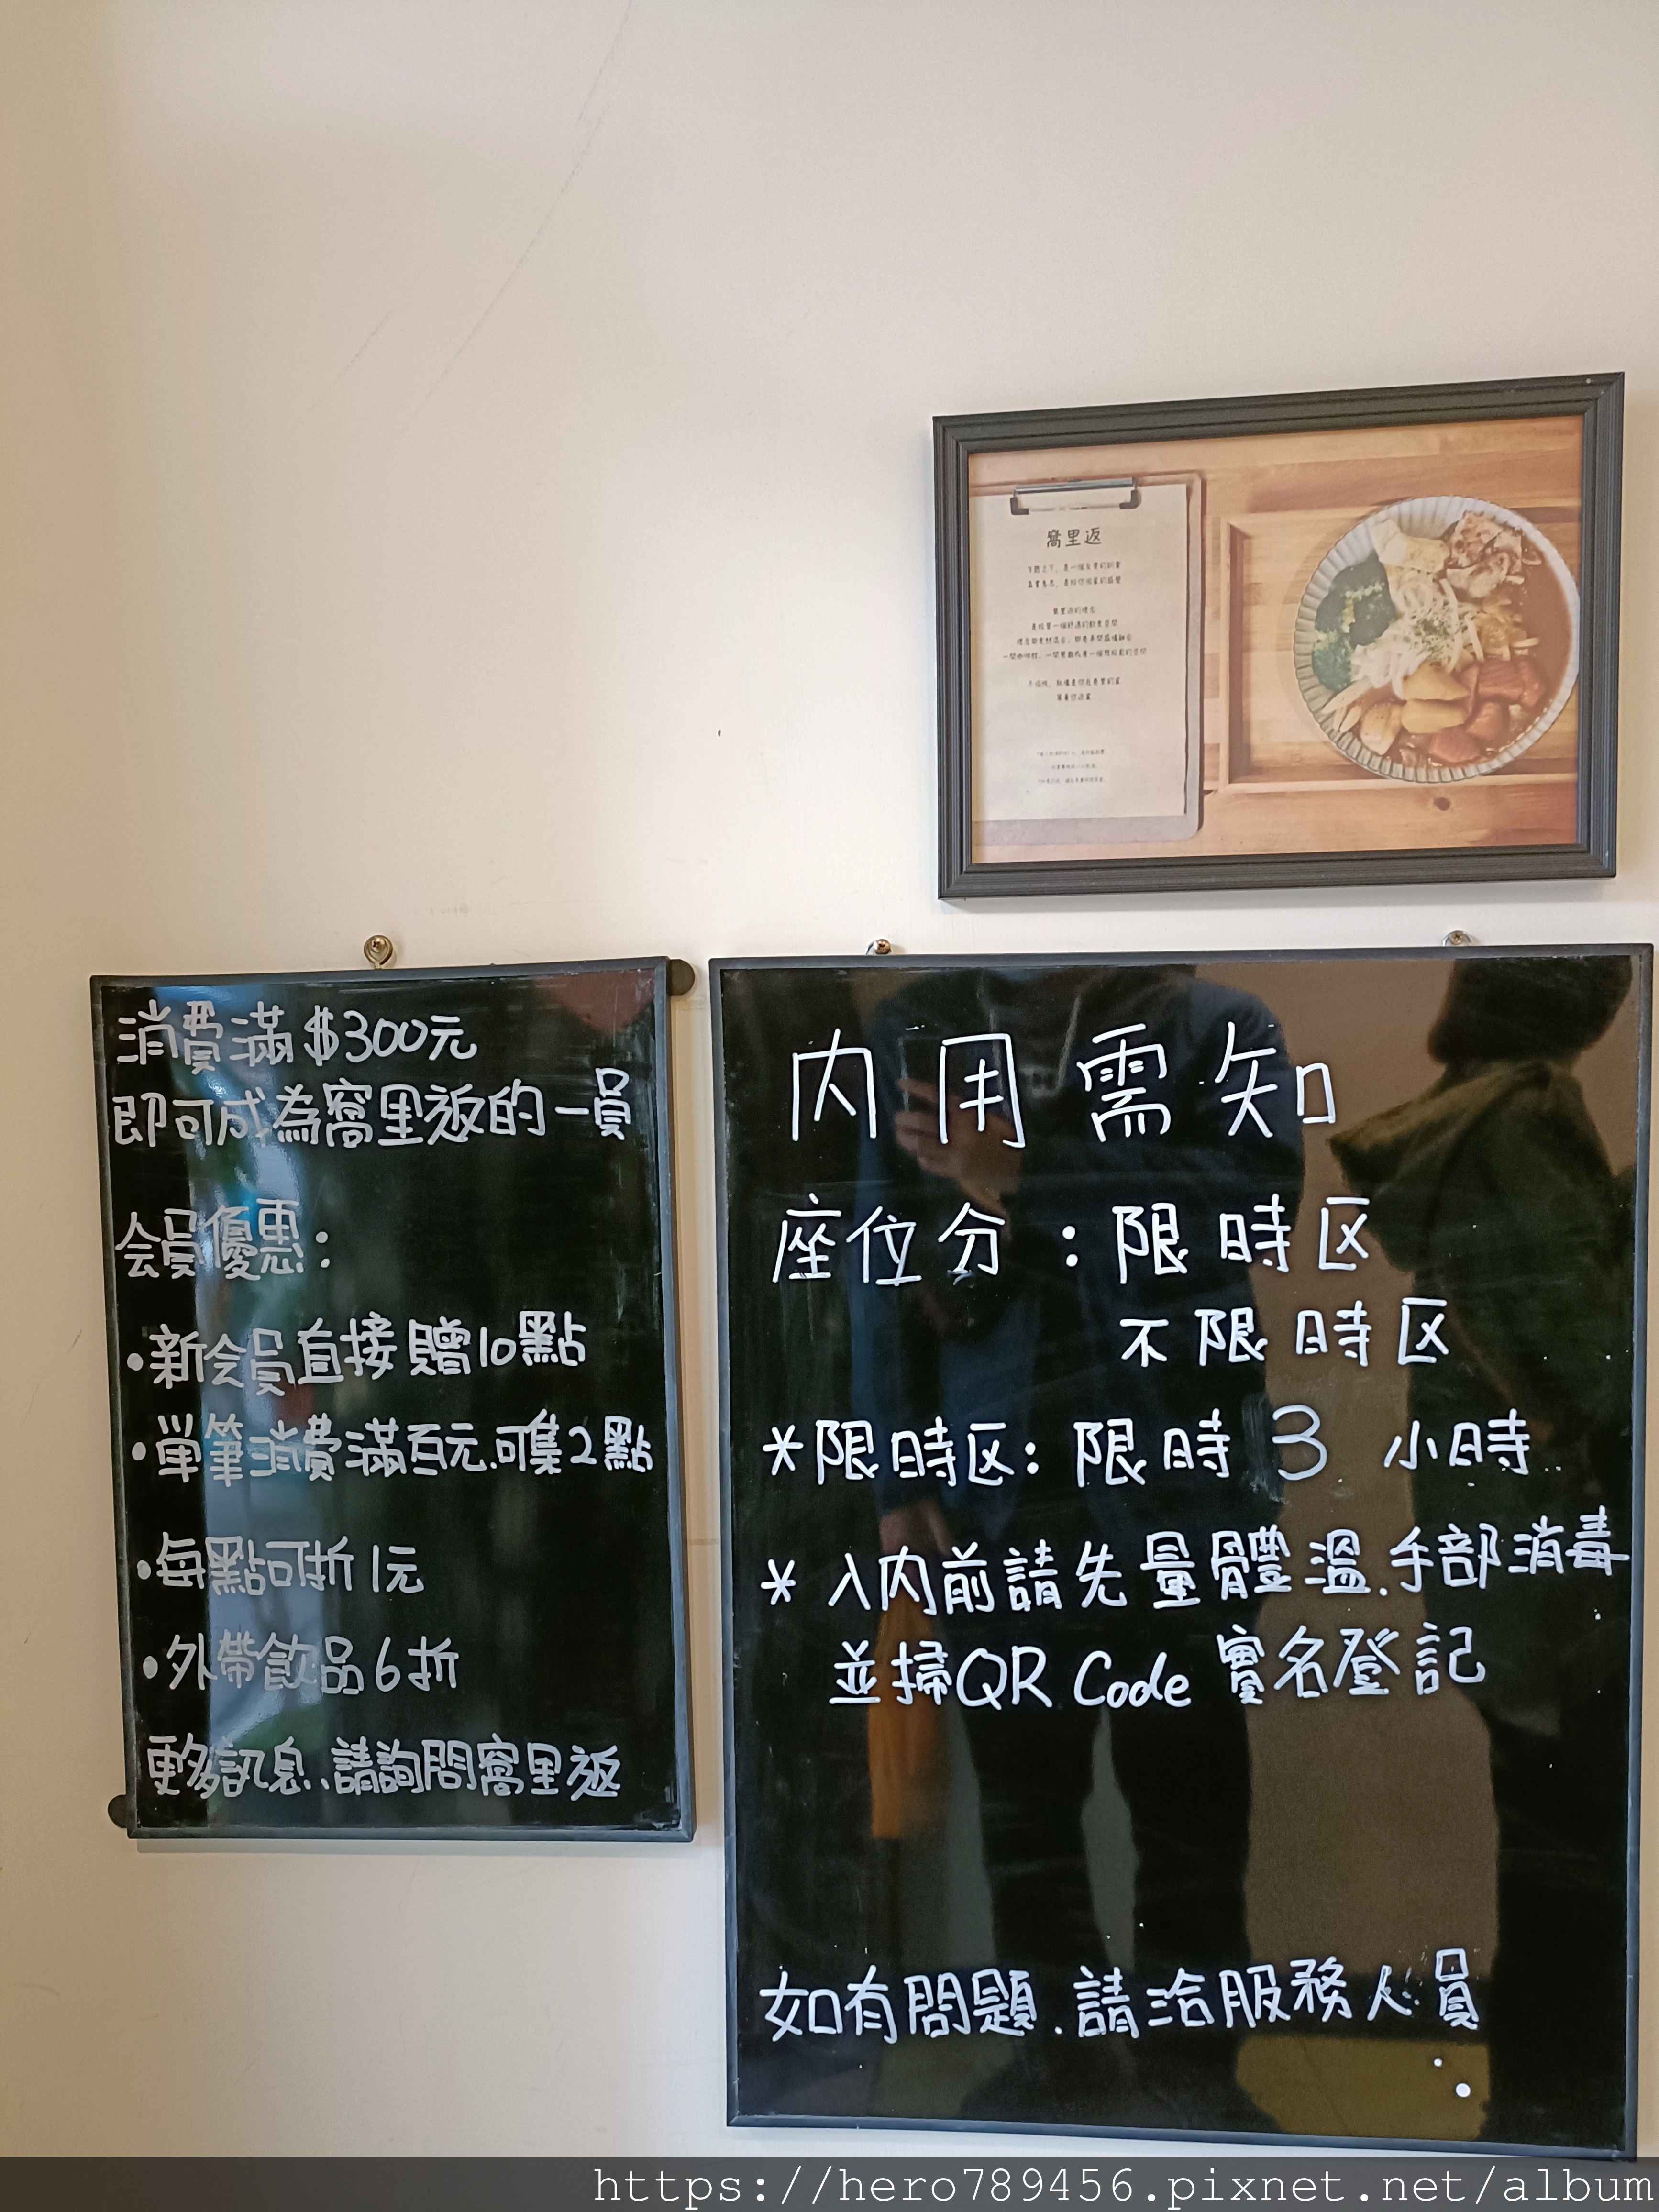 窩里返
窩里返的理念
消費滿$300元
即可成為窩里返的一員
会員優惠：
•新会員直接贈10點
•單筆消費滿百元.可集2點
•每點可折1元
•外帶飲品6折
更多訊息、請詢問窩里返
內用需知
座位分：限時区
不限時区
*限時区：限時3小時
*入內前請先量體溫.手部消毒
並掃QR Code 實名登記
如有問題.請洽服務人員
https://hero789456.pixnet.net/album